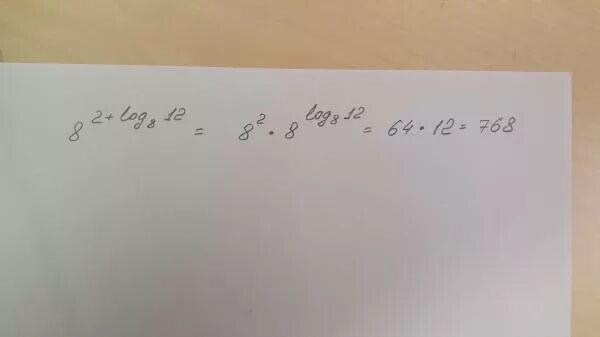 8^{2+log_8 12} = 8^2 · 8^{log_8 12} = 64 · 12 = 768